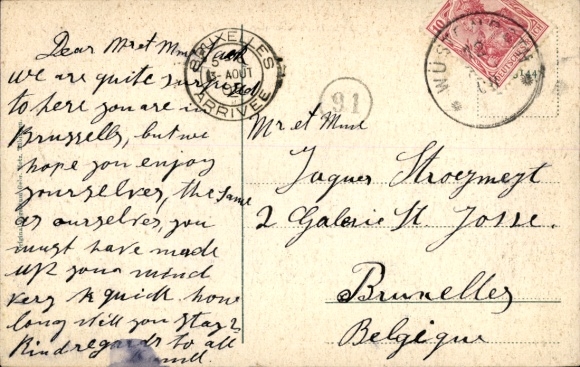 Dear Mr et Mme
we are quite surprised
to here you are in
Brussells, but we
hope you enjoy
yourselves, the same
as ourselves, you
must have made
up your mind
very quick how
long still you stay?
Kind regards to all
BRUXELLES
13- AOUT
ARRIVEE
91
DEUTSCHES
10
Mr et Mme
Jaques Stroezmeyt
2 Galerie St. Josse.
Bruxelles
Belgique